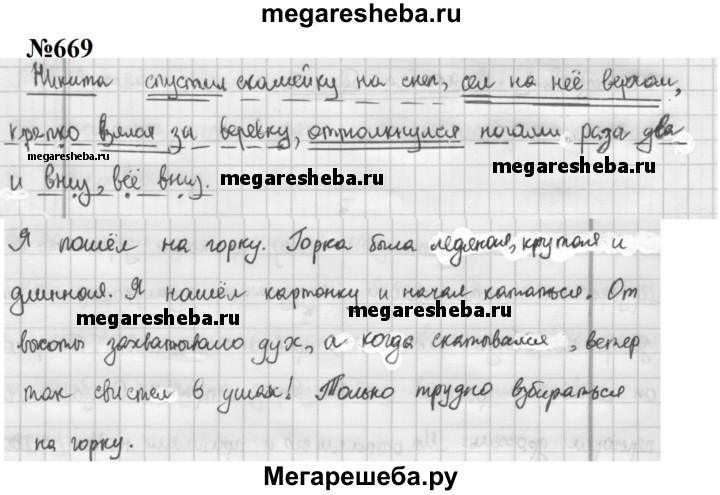 megaresheba.ru
№669
Никита спустил скамейку на снег, сел на неё верхом,
крепко взялся за веревку, оттолкнулся ногами раза два
megaresheba.ru
и вниз, всё вниз. megaresheba.ru
megaresheba.ru
Я пошёл на горку. Горка была ледяная, крутая и
длинная. Я нашёл картонку и начал кататься. От
megaresheba.ru megaresheba.ru
высоты захватывало дух, а когда скатывался, ветер
так свистел в ушах! Только трудно взбираться
на горку.
Мегарешеба.ру